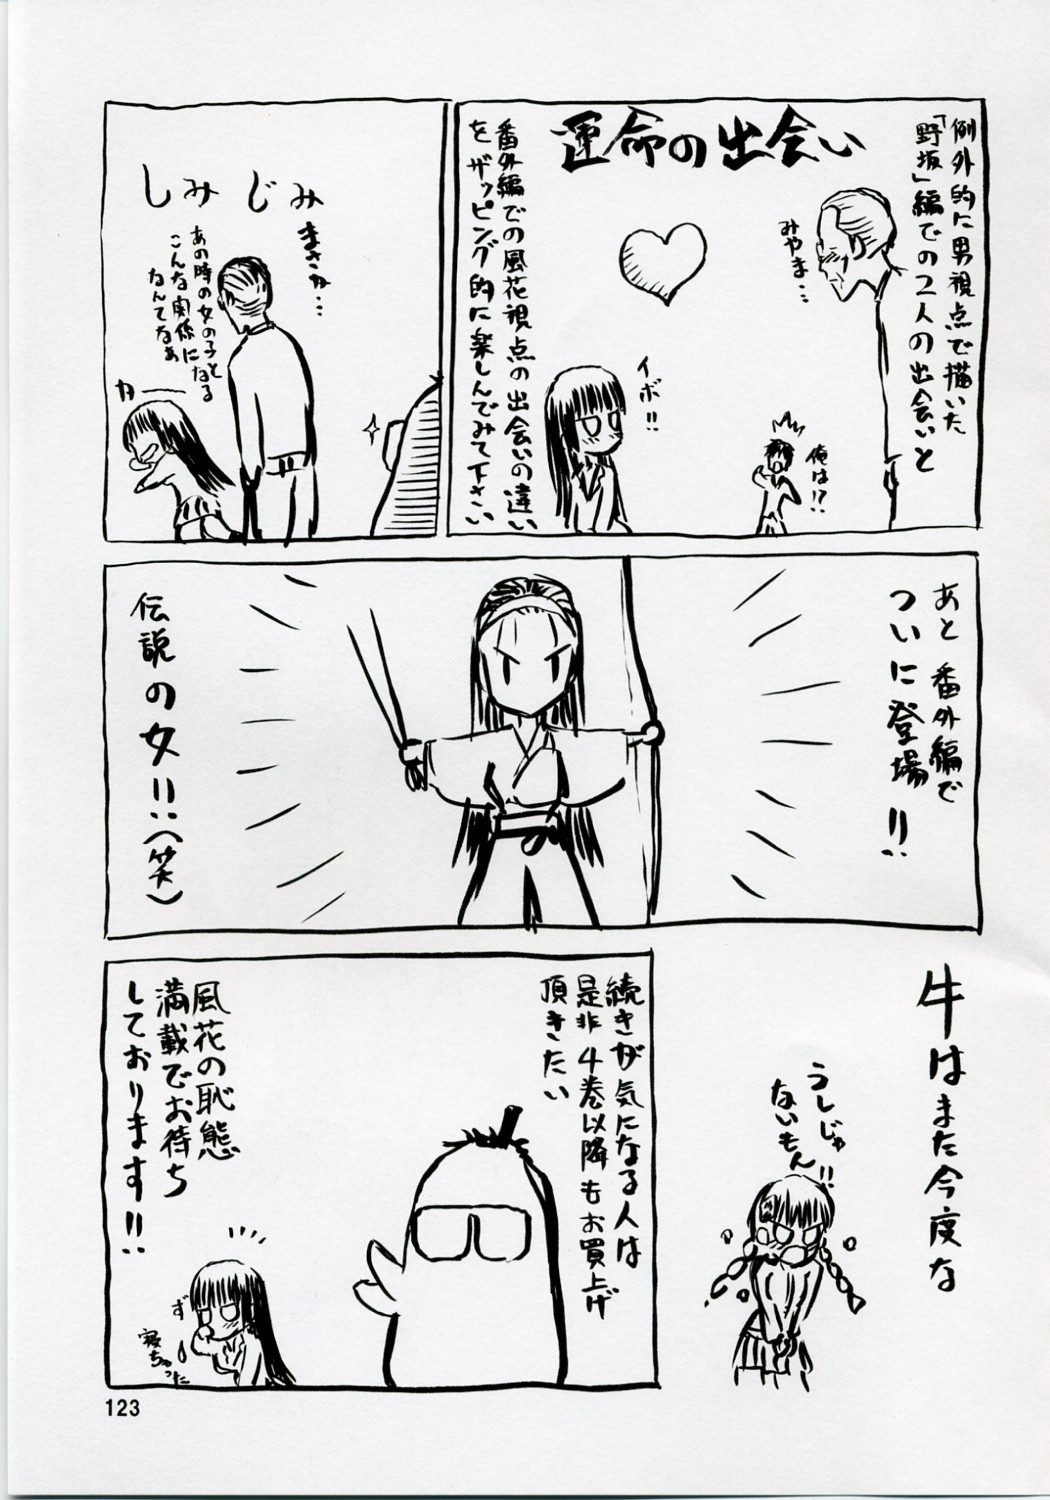 例外的に男視点で描いた
「野坂」編での2人の出会いと
運命の出会い
番外編での風花視点の出会いの違い
をザッピング的に楽しんでみて下さい
みやま…
イボ!!
俺は!?
しみじみ
まさか…
あの時の女の子と
こんな関係になる
なんてなあ
カー
あと番外編で
ついに登場!!
伝説の女!!(笑)
続きが気になる人は
是非4巻以降もお買上げ
頂きたい
風花の恥態
満載でお待ち
しております!!
ず
寝ちゃった
牛はまた今度な
うしじゃ
ないもん!!
123